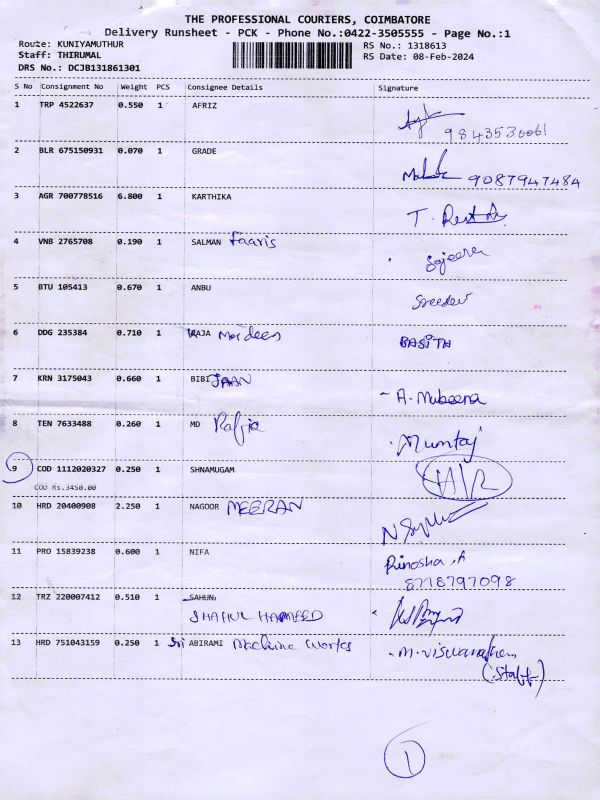 THE PROFESSIONAL COURIERS, COIMBATORE
Delivery Runsheet - PCK - Phone No.:0422-3505555 - Page No.:1
Route: KUNIYAMUTHUR RS No.: 1318613
Staff: THIRUMAL RS Date: 08-Feb-2024
DRS No.: DCJB131861301
S No Consignment No Weight PCS Consignee Details Signature
1 TRP 4522637 0.550 1 AFRIZ
9843530061
2 BLR 675150931 0.070 1 GRADE
9087947484
3 AGR 700778516 6.800 1 KARTHIKA T.
4 VNB 2765708 0.190 1 SALMAN Faaris Sajeena
5 BTU 105413 0.670 1 ANBU Sreedev
6 DDG 235384 0.710 1 RAJA BASITH
7 KRN 3175043 0.660 1 BIBI JAAN - A. Mubeena
8 TEN 7633488 0.260 1 MD Rafia Mumtaj
9 COD 1112020327 0.250 1 SHNAMUGAM
COD Rs.3450.00
10 HRD 20400908 2.250 1 NAGOOR MEERAN
11 PRO 15839238 0.600 1 NIFA Rinosha.A
8778797098
12 TRZ 220007412 0.510 1 SAHUN
SHAHUL HAMEED
13 HRD 751043159 0.250 1 Sri ABIRAMI Machine works - M. Viswanathan
(Staff)
1